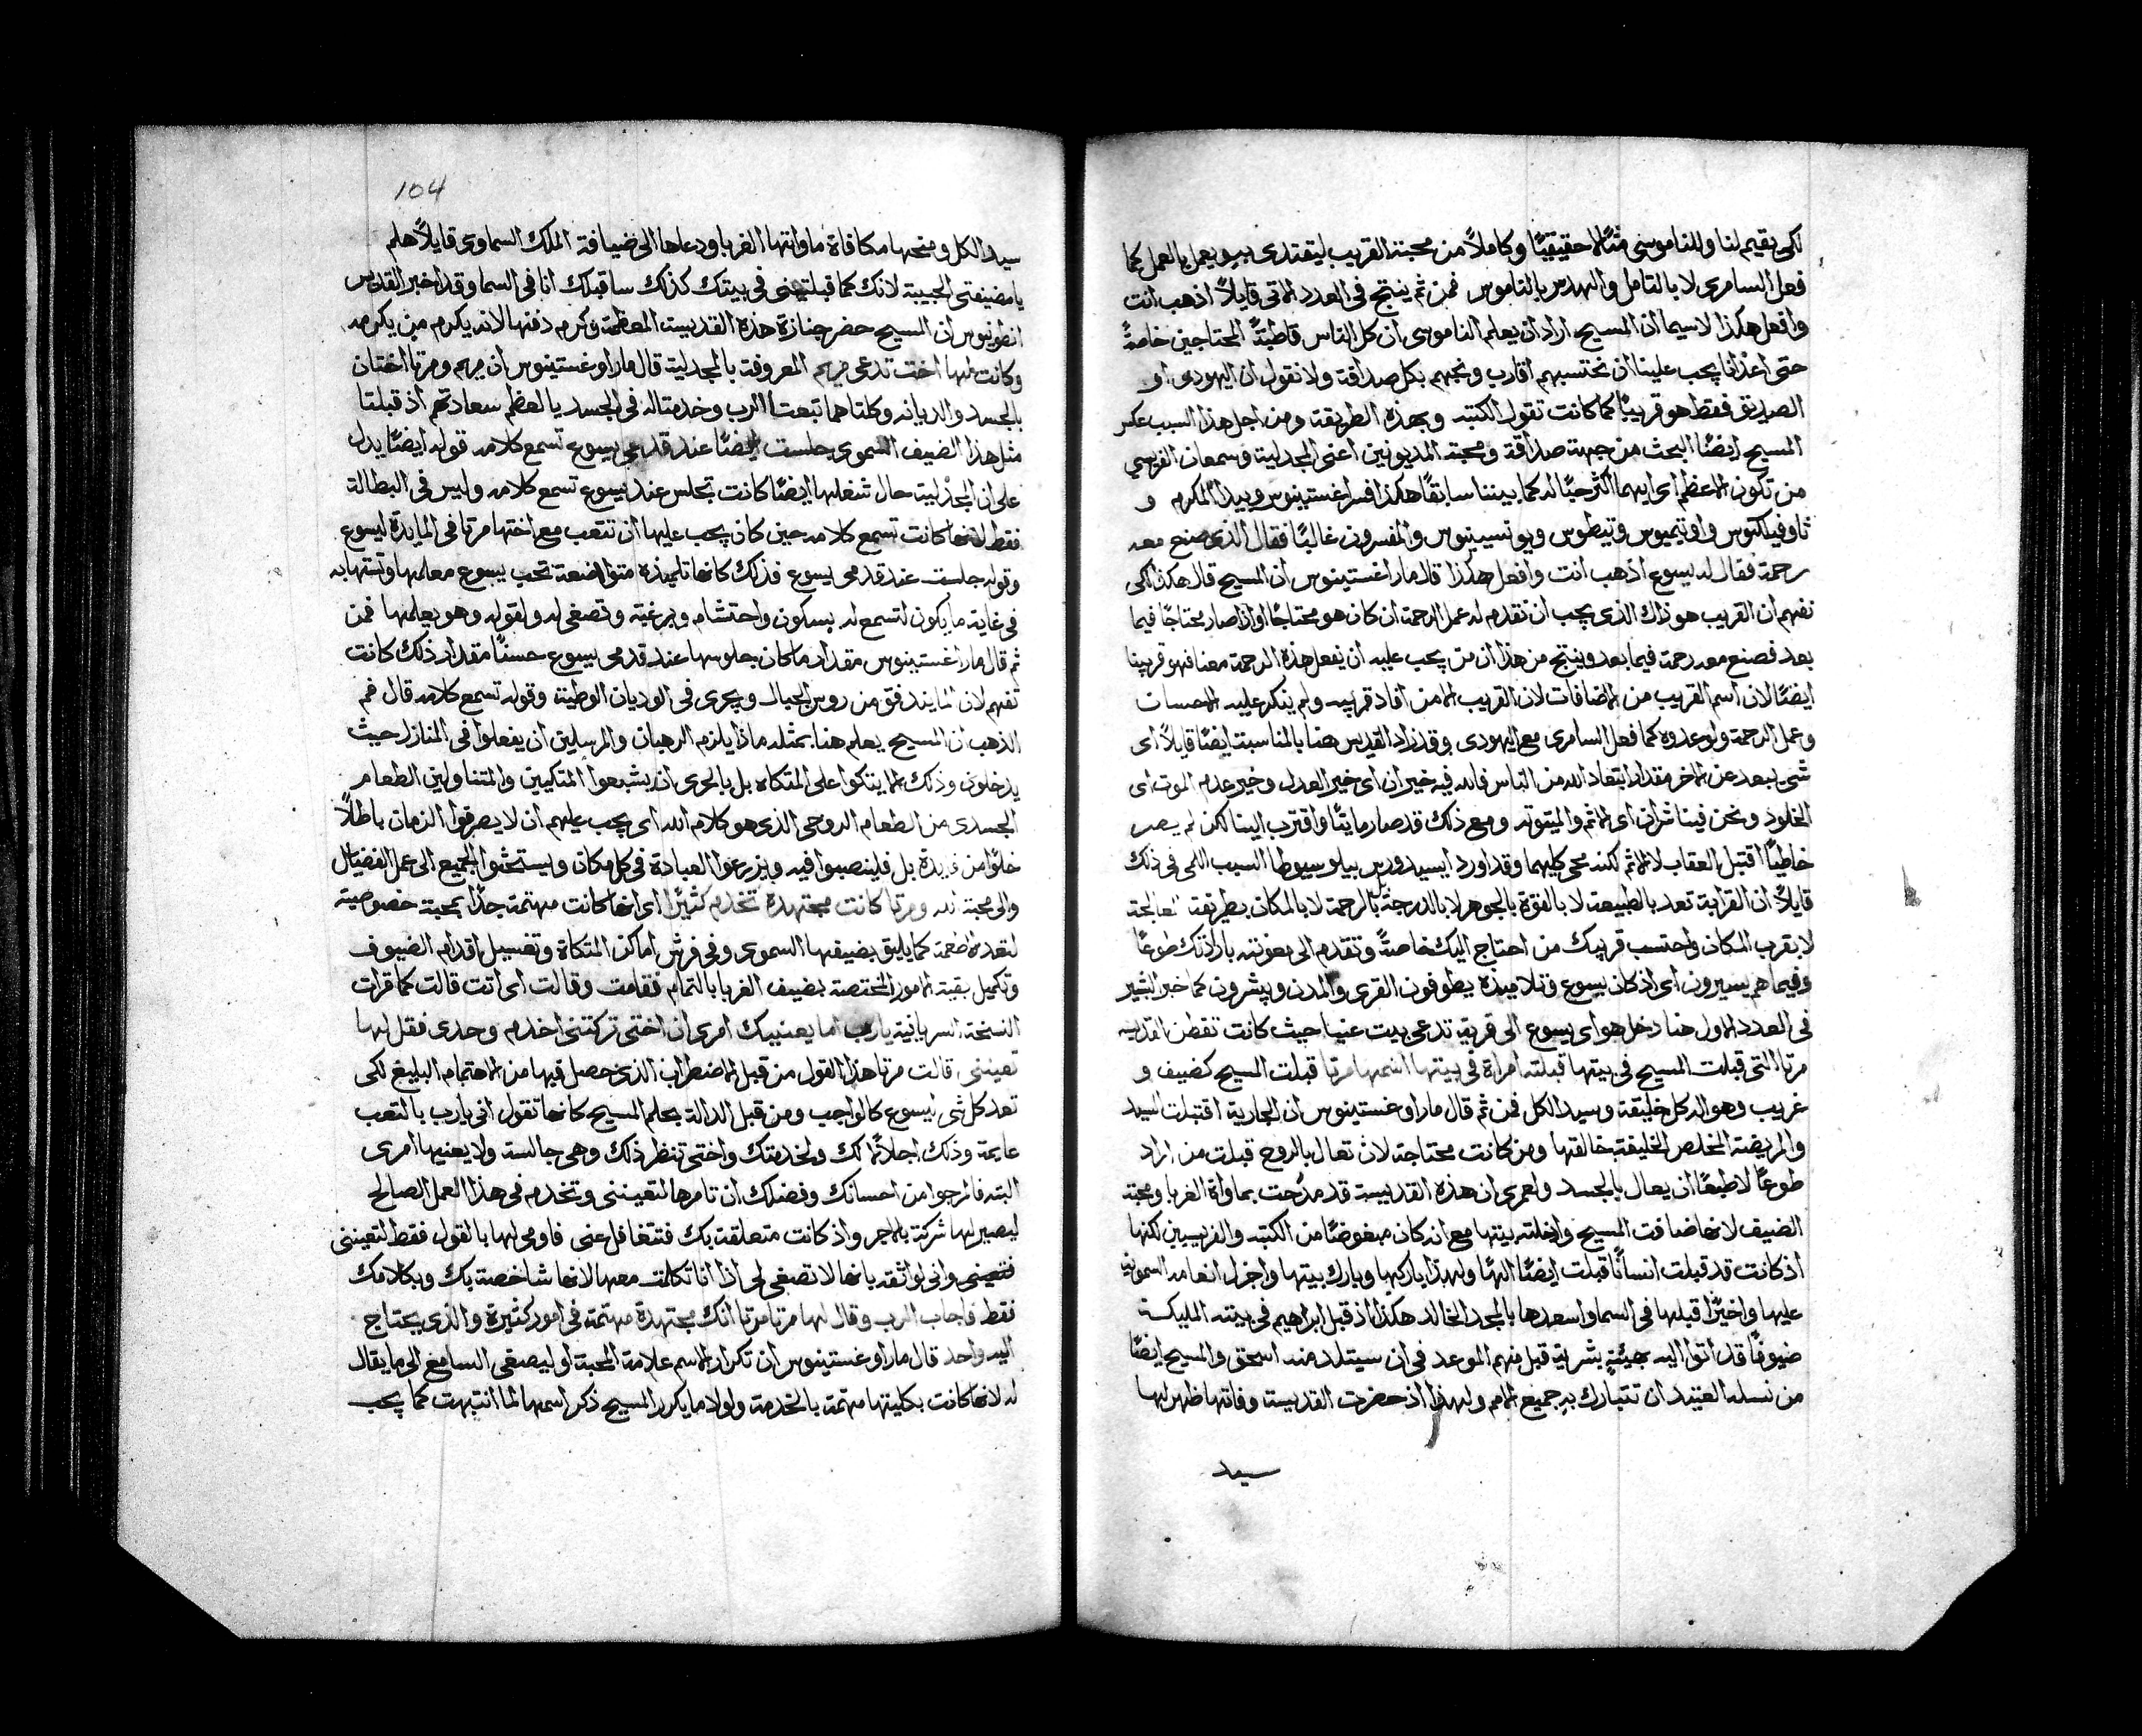 لكى يقيم لنا وللناموسى مثالاً حقيقيًا وكاملاً من محبة القريب ليقتدى به ويعمل بالعمل كما
فعل السامرى لا بالتامل والهدس بالناموس فمن ثم ينتج فى العدد الاتى قايلاً اذهب انت
وافعل هكذا لاسيما ان المسيح اراد ان يعلم الناموسى ان كل الناس قاطبةً المحتاجين خاصةً
حتى اعدانا يجب علينا ان نحتسبهم اقارب ونحبهم بكل صداقة ولا نقول ان اليهودى او
الصديق فقط هو قريبنا كما كانت تقول الكتبه وبهذه الطريقة ومن اجل هذا السبب عكس
المسيح ايضًا البحث من جهة صداقة ومحبة المديونين اعنى المجدلية وسمعان الفريسي
من تكون الاعظم اى ايهما اكثر حبًا له كما بيننا سابقًا هكذا فسر اغستينوس وبيدا المكرم و
ثاوفيلكتوس واوتيميوس وتيطوس ويونسينيوس والمفسرون غالبًا فقال الذى صنع معه
رحمة فقال له يسوع اذهب انت وافعل هكذا قال مار اغستينوس ان المسيح قال هكذا لكى
نفهم ان القريب هو ذاك الذى يجب ان نقدم له عمل الرحمة ان كان هو محتاجًا او اذا صار محتاجًا فيما
بعد فصنع معه رحمة فيما بعد وينتج من هذا ان من يجب عليه ان يفعل هذه الرحمة معنا فهو قريبنا
ايضًا لان اسم القريب من الاضافات لان القريب الا من افاد قريبه ولم ينكر عليه الاحسان
وعمل الرحمة ولو عدوه كما فعل السامرى مع اليهودى وقد زاد القديس هنا بالمناسبة ايضًا قايلاً اى
شى يبعد عن الاخر مقدار ابتعاد الله من الناس فالله فيه خيران اى خير العدل وخير عدم الموت اى
الخلود ونحن فينا شران اى الاثم والميتوته ومع ذلك قد صار مايتًا واقترب الينا لكن لم يصر
خاطيًا اقتبل العقاب لا الاثم لكنه محى كليهما وقد اورد ايسيدوروس بيلوسيوطا السبب اللمى فى ذلك
قايلاً ان القرابة تعد بالطبيعة لا بالقوة بالجوهر لا بالدرجة بل بالرحمة لا بالمكان بطريقة المعالجة
لا بقرب المكان واحتسب قريبك من احتاج اليك خاصةً وتقدم الى معونته بارادتك طوعًا
وفيما هم يسيرون اى اذ كان يسوع وتلاميذه يطوفون القرى والمدن ويبشرون كما خبر البشير
فى العدد الاول هنا دخل هو اى يسوع الى قرية تدعى بيت عنيا حيث كانت تقطن القديسه
مرتا التى قبلت المسيح فى بيتها قبلته امراة فى بيتها اسمها مرتا قبلت المسيح كضيف و
غريب وهو اله كل خليقة وسيد الكل فمن ثم قال مار اوغستينوس ان الجارية اقتبلت السيد
والمريضة المخلص الخليقة خالقها ومن كانت محتاجة لان تعال بالروح قبلت من اراد
طوعًا لا طبعًا ان يعال بالجسد ولعمرى ان هذه القديسة قد مدحت بماواة الغربا ومحبة
الضيف لانها ضافت المسيح وادخلته بيتها مع انه كان مبغوضًا من الكتبه والفريسيين لكنها
اذ كانت قد قبلت انسانًا قبلت ايضًا الهًا ولهذا باركها وبارك بيتها واجزل انعامه السموية
عليها واخيرًا قبلها فى السما واسعدها بالمجد الخالد هكذا اذ قبل ابراهيم فى بيته المليكة
ضيوفًا قد اتوا اليه بهيئة بشرية قبل منهم الموعد فى ان سيتلد منه اسحق والمسيح ايضًا
من نسله العتيد ان تتبارك به جميع الامم ولهذا اذ حضرت القديسة وفاتها ظهر لها
سيد
104
سيد الكل ومنحها مكافاة ماواتها الغربا ودعاها الى ضيافة الملك السماوى قايلاً هلم
يا مضيفتى الحبيبة لانك كما قبلتينى فى بيتك كذلك ساقبلك انا فى السما وقد اخبر القديس
انطونيوس ان المسيح حضر جنازة هذه القديسة المعظمة وكرم دفنها لانه يكرم من يكرمه
وكانت لها اخت تدعى مريم المعروفة بالمجدلية قال مار اوغستينوس ان مريم ومرتا اختان
بالجسد والديانه وكلتاهما تبعتا الرب وخدمتاه فى الجسد يا لعظم سعادتهم اذ قبلتا
مثل هذا الضيف السموى جلست ايضًا عند قدمى يسوع تسمع كلامه قوله ايضًا يدل
على ان المجدلية حال شغلها ايضًا كانت تجلس عند يسوع تسمع كلامه وليس فى البطالة
فقط لانها كانت تسمع كلامه حين كان يجب عليها ان تتعب مع اختها مرتا فى المايدة ليسوع
وقوله جلست عند قدمى يسوع فذلك كانها تلميذه متواضعة تحب يسوع معلمها وتشتها به
فى غاية ما يكون لتسمع له بسكون واحتشام وبرغبة وتصغى له ولقوله وهو يعلمها فمن
ثم قال مار اغستينوس مقدار ما كان جلوسها عند قدمى يسوع حسنًا مقدار ذلك كانت
تفهم لان الما يندفق من روس الجبال ويجرى فى الوديان الوطية وقوله تسمع كلامه قال فم
الذهب ان المسيح يعلم هنا بمثله ماذا يلزم الرهبان والمرسلين ان يفعلوا فى المنازل حيث
يدخلون وذلك الا يتكوا على المتكاه بل بالحرى ان يشبعوا المتكيين والمتناولين الطعام
الجسدى من الطعام الروحى الذى هو كلام الله اى يجب عليهم ان لا يصرفوا الزمان باطلاً
خلوًا من فايدة بل فلينصبوا فيه ويزرعوا العبادة فى كل مكان ويستحثوا الجميع الى عمل الفضايل
والى محبة الله ومرتا كانت مجتهدة تخدم كثيرًا اى انها كانت مهتمة جدًا بمحبة خصوصية
لتعد الاطعمة كما يليق بضيفها السموى وفى فرش اماكن المتكاة وتغسيل اقدام الضيوف
وتكميل بقية الامور المختصة بضيف الغربا بالتمام فقامت وقالت اى اتت قالت كما قرات
النسخة السريانية يارب اما يعنييك امرى ان اختى تركتنى اخدم وحدى فقل لها
تعيننى قالت مرتا هذا القول من قبل الاضطراب الذى حصل فيها من الاهتمام البليغ لكى
تعد كل شى ليسوع كالواجب ومن قبل الدالة بحلم المسيح كانها تقول انى يارب بالتعب
عايمة وذلك اجلالاً لك ولخدمتك واختى تنظر ذلك وهى جالسة ولا يعنيها امرى
البته فارجوا من احسانك وفضلك ان تامرها لتعيننى وتخدم فى هذا العمل الصالح
ليصير لها شركة بالاجر واذ كانت متعلقة بك فتتغافل عنى فاومى لها بالقول فقط لتعيننى
فتعيننى وانى لواثقه بانها لا تصغى لى اذا انا تكلمت معها لانها شاخصة بك وبكلامك
فقط فاجاب الرب وقال لها مرتا مرتا انك مجتهدة مهتمة فى امور كثيرة والذى يحتاج
اليه واحد قال مار اوغستينوس ان تكرار الاسم علامة المحبة او ليصغى السامع الى ما يقال
له لانها كانت بكليتها مهتمة بالخدمة ولولا ما يكرر المسيح ذكر اسمها لما انتبهت كما يجب